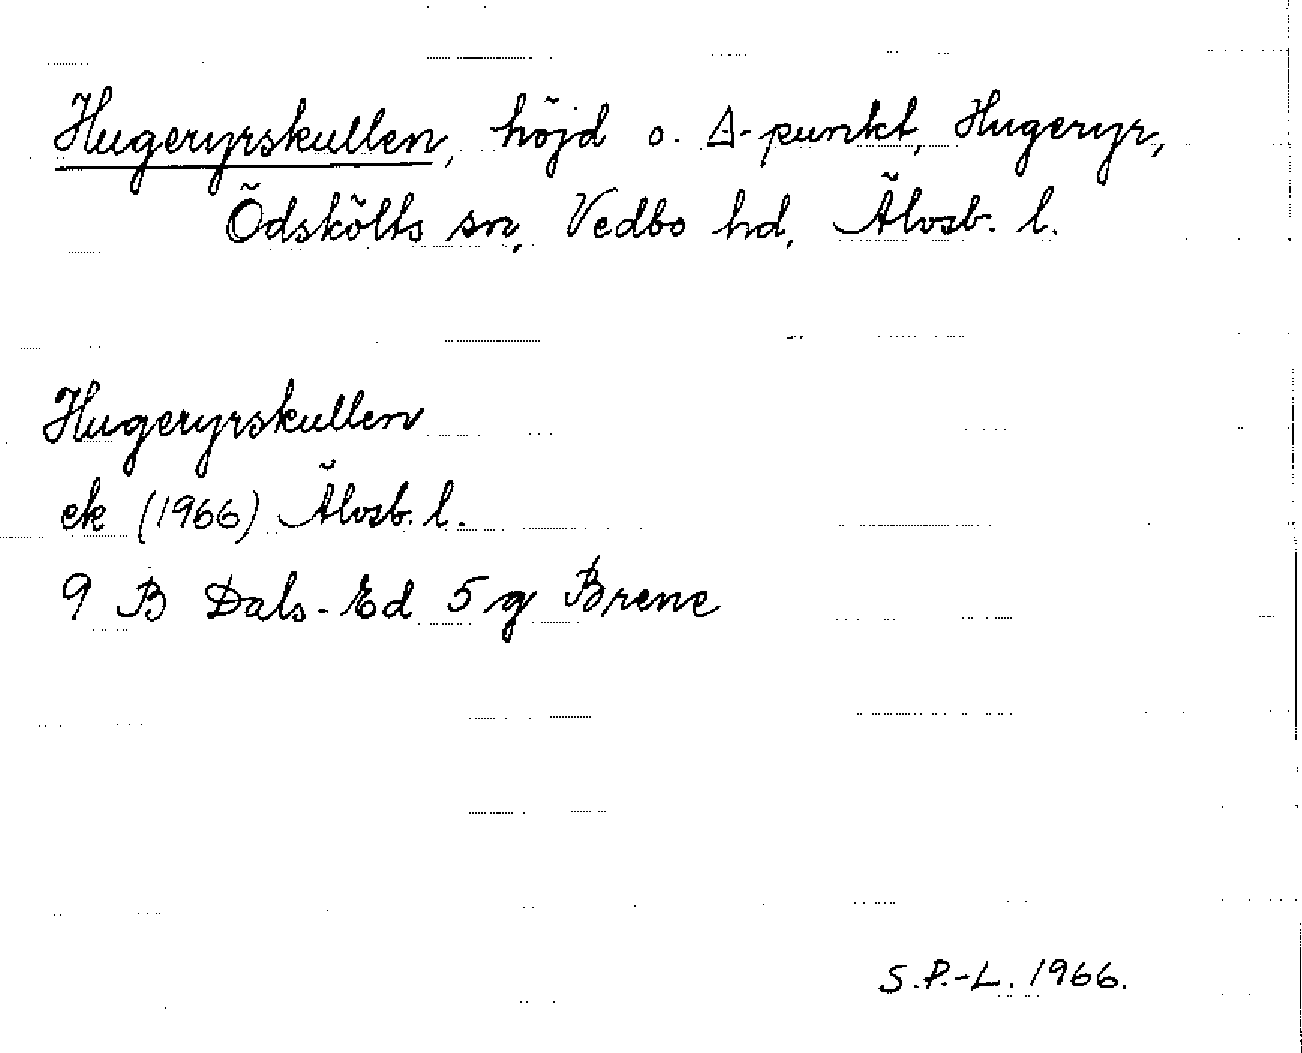 Hugeryrskullen, höjd o. Δ-punkt, Hugeryr,
Ödskölts sn, Vedbo hd, Älvsb. l.
Hugeryrskullen
ek (1966) Älvsb. l.
9 B Dals-Ed 5 g Brene
S.P.-L. 1966.